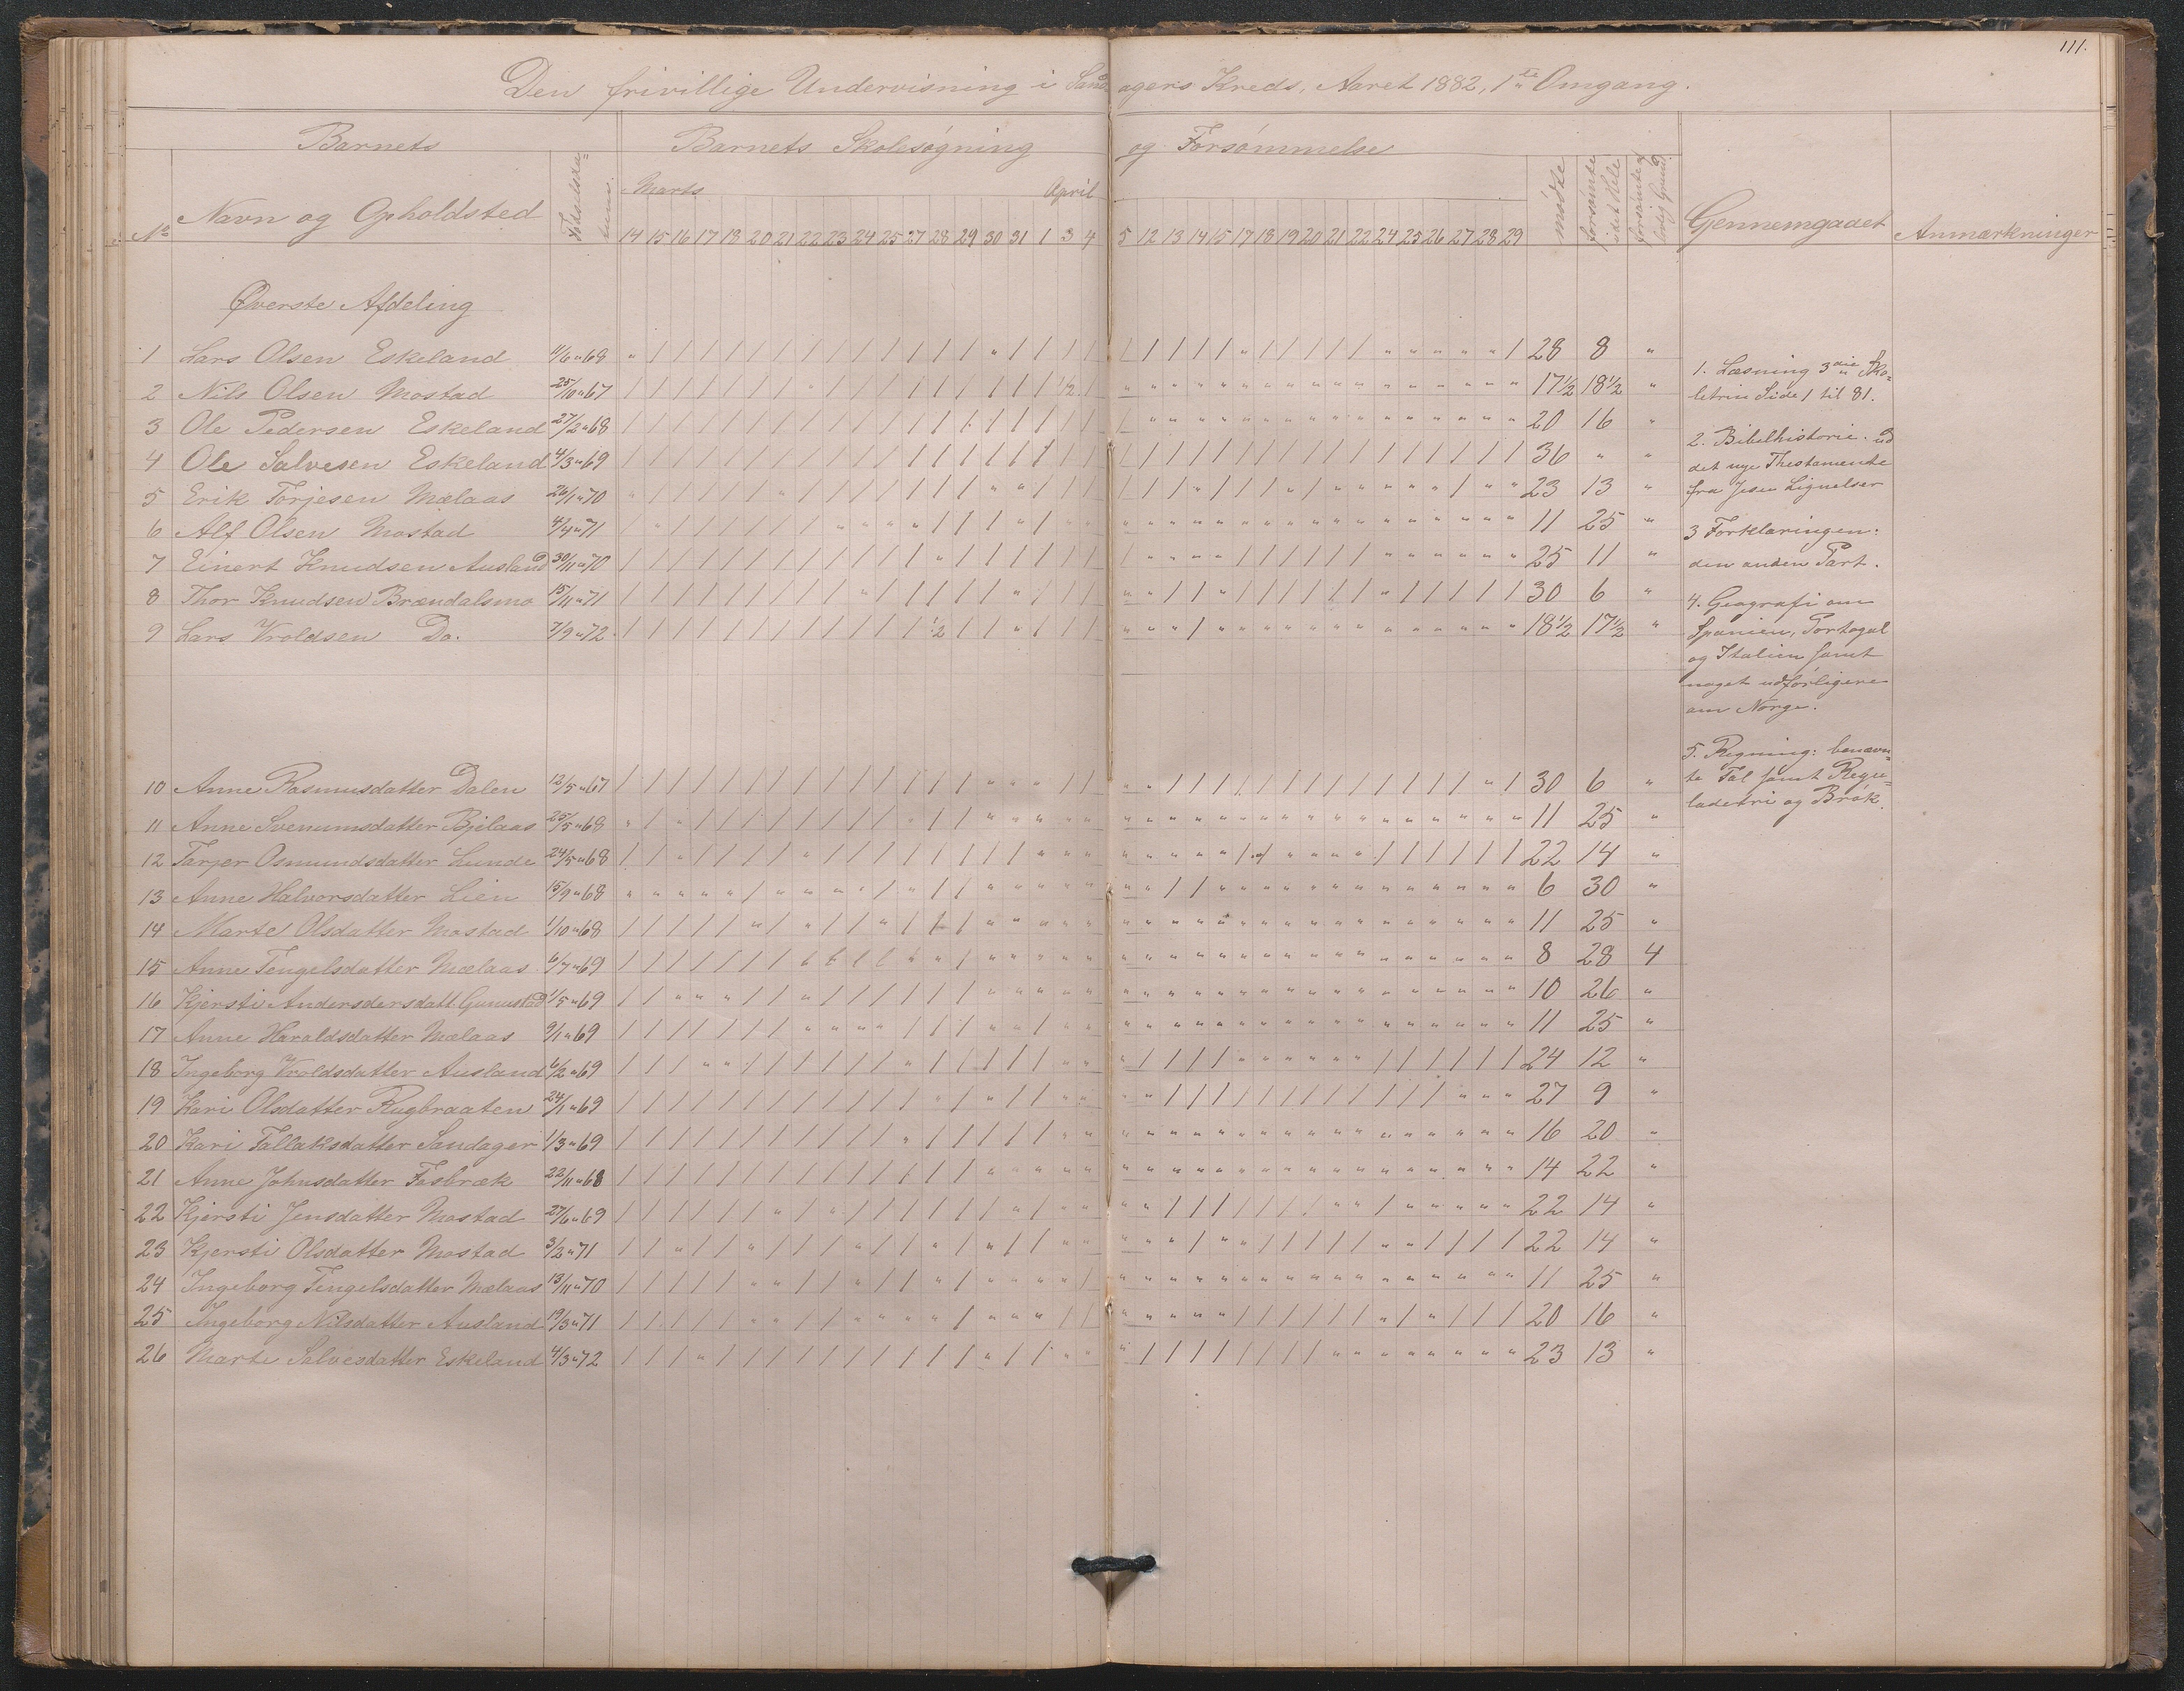 111.
Den frivillige Undervisning i Sandagers Kreds, Aaret 1882, 1ste Omgang.
Barnets
Barnets Skolesøgning og Forsømmelse
No Navn og Opholdsted
Marts April
14 15 16 17 18 20 21 22 23 24 25 27 28 29 30 31 1 3 4 5 12 13 14 15 17 18 19 20 21 22 24 25 26 27 28 29
mødte
forsømte i det Hele
Gjennemgaaet
Anmærkninger
Øverste Afdeling
1 Lars Olsen Eskeland 11/6 " 68 28 8 "
2 Nils Olsen Mostad 25/10 " 67 17 1/2 18 1/2 "
3 Ole Pedersen Eskeland 27/2 " 68 20 16 "
4 Ole Salvesen Eskeland 4/3 " 69 36 " "
5 Erik Torjesen Mælaas 26/1 " 70 23 13 "
6 Alf Olsen Mostad 4/4 " 71 11 25 "
7 Einert Knudsen Ausland 30/11 " 70 25 11 "
8 Thor Knudsen Brændalsmo 15/11 " 71 30 6 "
9 Lars Vroldsen Do. 7/9 " 72 18 1/2 17 1/2 "
10 Anne Rasmusdatter Dalen 12/5 " 67 30 6 "
11 Anne Svenumsdatter Bjelaas 25/5 " 68 11 25 "
12 Tarjer Osmundsdatter Lunde 24/5 " 68 22 14 "
13 Anne Halvorsdatter Lien 15/9 " 68 6 30 "
14 Marte Olsdatter Mostad 1/10 " 68 11 25 "
15 Anne Tengelsdatter Mælaas 6/7 " 69 8 28 4
16 Kjersti Andersdersdatt. Gunustad 1/5 " 69 10 26 "
17 Anne Haraldsdatter Mælaas 9/1 " 69 11 25 "
18 Ingeborg Vroldsdatter Ausland 6/2 " 69 24 12 "
19 Kari Olsdatter Rugbraaten 24/1 " 69 27 9 "
20 Kari Tallaksdatter Sandager 1/3 " 69 16 20 "
21 Anne Johnsdatter Fosbræk 22/11 " 68 14 22 "
22 Kjersti Jensdatter Mostad 27/6 " 69 22 14 "
23 Kjersti Olsdatter Mostad 3/2 " 71 22 14 "
24 Ingeborg Tengelsdatter Mælaas 13/11 " 70 11 25 "
25 Ingeborg Nilsdatter Ausland 19/3 " 71 20 16 "
26 Marte Salvesdatter Eskeland 4/3 " 72 23 13 "
1. Læsning 3die Sko-
letrin Side 1 til 81.
2. Bibelhistorie. ud
det nye Thestamente
fra Jesu Lignelser
3 Forklaringen:
den anden Part.
4. Geografi om
Spanien, Portogal
og Italien samt
noget udførligere
om Norge.
5. Regning: benævn-
te Tal samt Regu-
ladetri og Brøk.